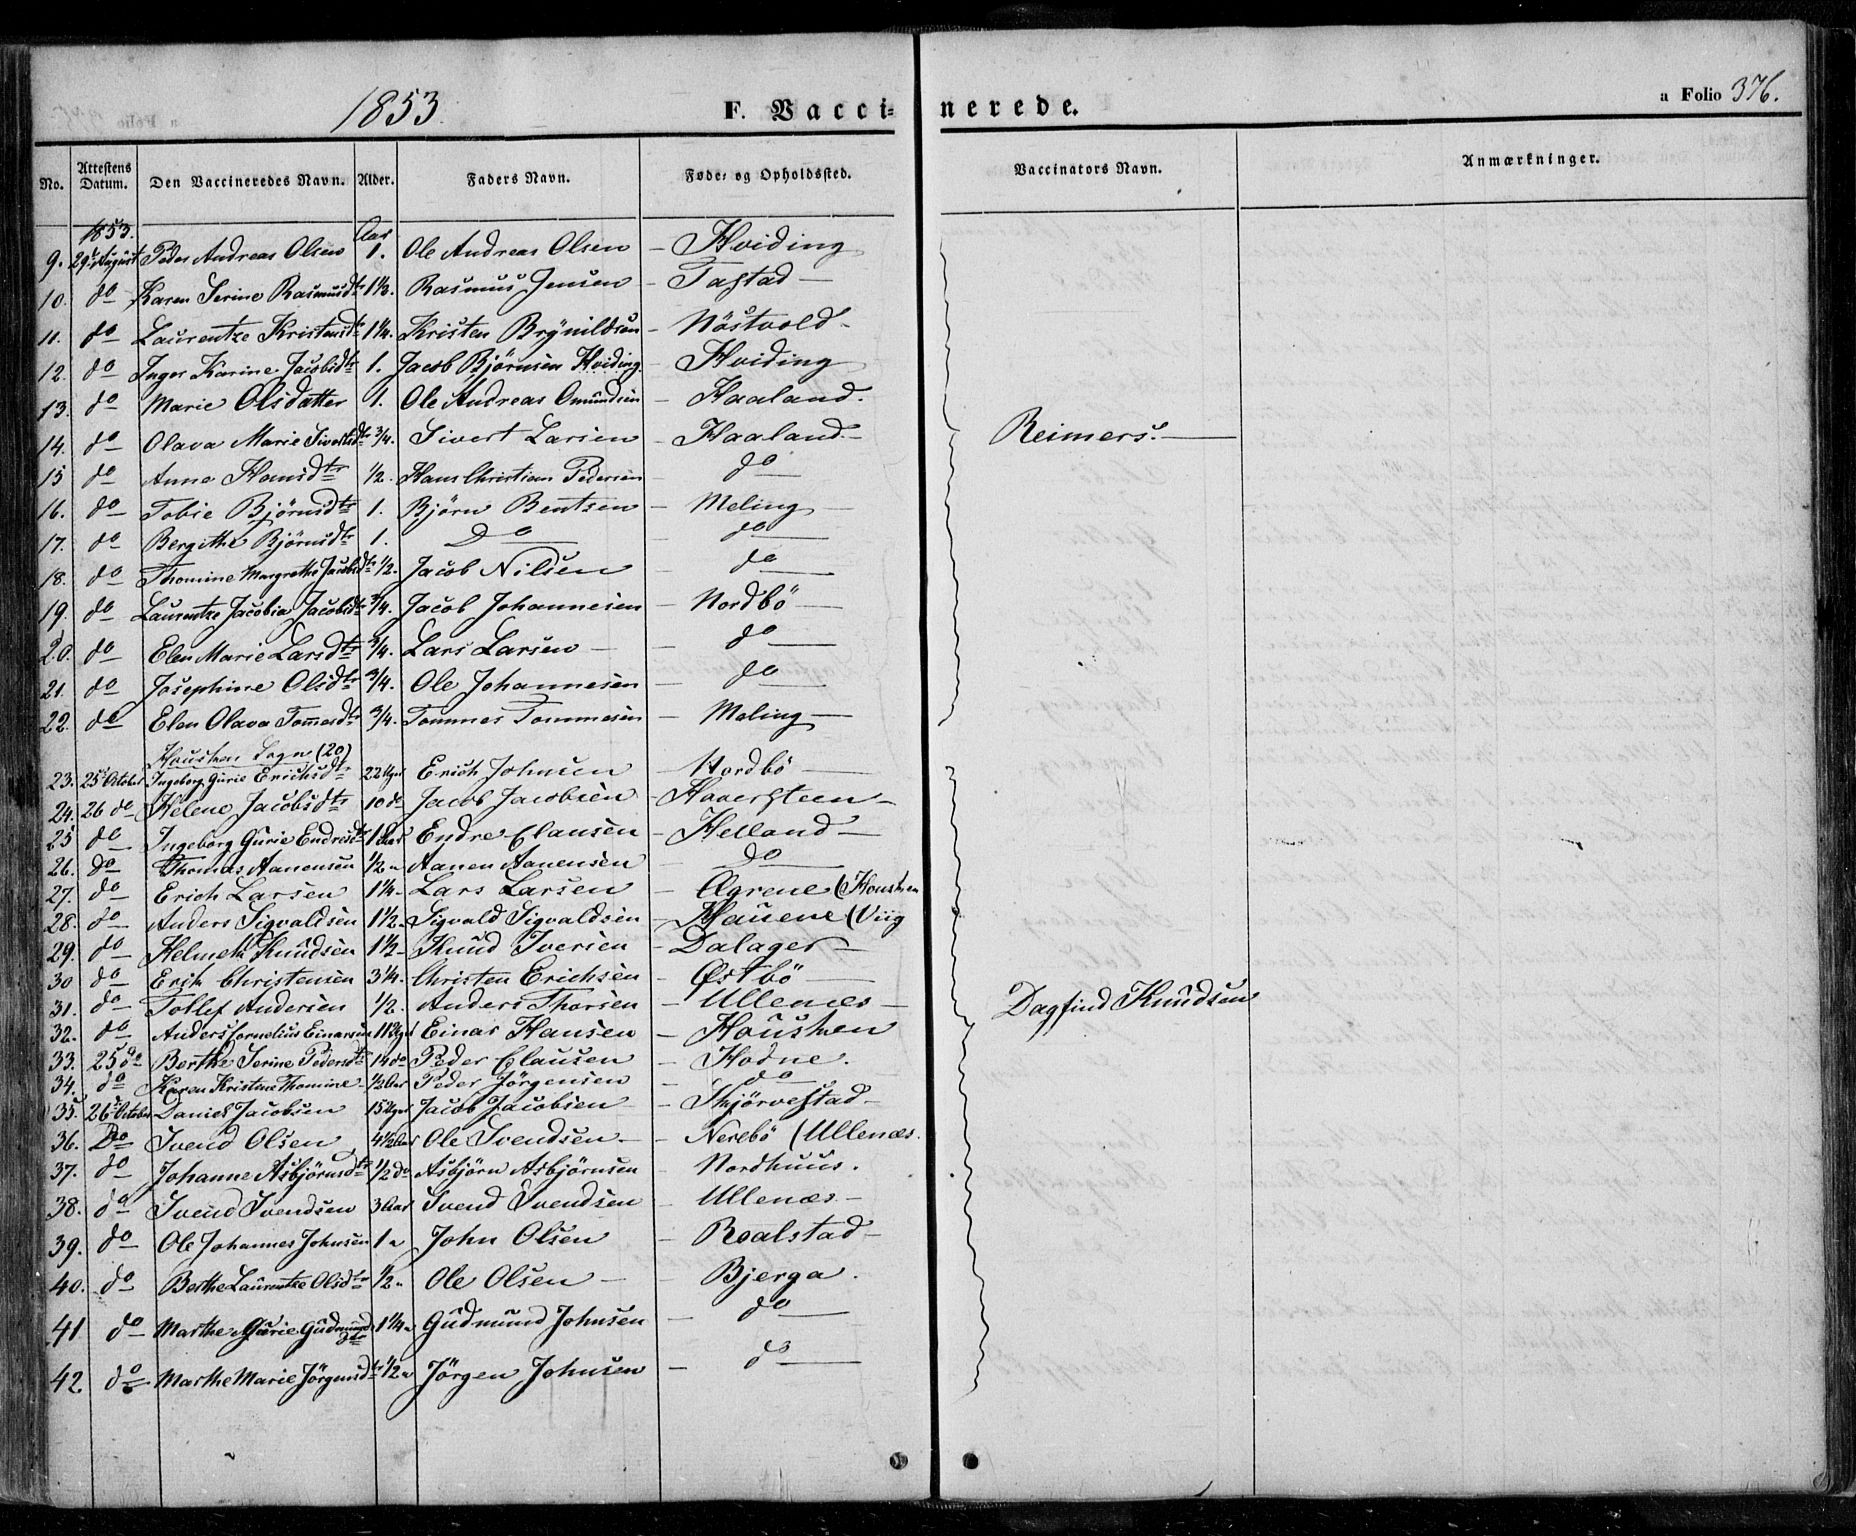 1853. F. Vaccinerede. a Folio 376.
No. Attestens Datum. Den Vaccineredes Navn. Alder. Faders Navn. Føde- og Opholdssted. Vaccinators Navn. Anmærkninger.
1853. Aar
9. 29 August Peder Andreas Olsen 1. Ole Andreas Olsen – Hviding
10. do Karen Serine Rasmusdtr 1½. Rasmus Jensen – Tastad –
11. do Laurentze Kristensdtr 1¼. Kristen Brynildsen – Nöstvold –
12. do Inger Karine Jacobsdtr 1. Jacob Bjørnsen Hviding. – Hviding
13. do Marie Olsdatter 1. Ole Andreas Omundsen – Haaland.
14. do Olava Marie Sivertsdtr ¾. Sivert Larsen – Haaland. – Reimers. –
15 do Anne Hansdtr ½. Hans Christian Pedersen – do
16. do Tobie Bjørnsdtr 1. Bjørn Bentsen – Meling –
17. do Bergithe Bjørnsdtr 1. Do – do
18. do Thomine Margrethe Jacobsdtr ½. Jacob Nilsen – do
19. do Laurentze Jacobia Jacobsdtr ¾. Jacob Johannesen – Nordbö –
20. do Elen Marie Larsdtr ¾. Lars Larsen – – do
21. do Josephine Olsdtr ¾. Ole Johannesen – do
22. do Elen Olava Tomesdtr ¾. Tommes Tommesen – Meling –
Housken Sogn (20)
23. 25 October Ingeborg Gurie Erichsdtr 22 Uger Erich Johnsen – Nordbö –
24. 26 do Helene Jacobsdtr 10 do Jacob Jacobsen – Hoversteen –
25 do Ingeborg Gurie Endresdtr 1 Aar Endre Clausen – Helland –
26. do Thomas Aanensen ½ " Aanen Aanensen – do
27. do Erich Larsen 1¼ – Lars Larsen – Agrene (Housken
28. do Anders Sigvaldsen 1½ – Sigvald Sigvaldsen – Hauene (Viig
29. do Helmeth Knudsen 1½ – Knud Iversen – Dalager –
30 do Erik Christensen 3¼. Christen Erichsen – Østbö –
31. do Tollef Andersen ½. Anders Thorsen – Ullenæs – Dagfind Knudsen
32. do Anders Cornelius Einarsen 11 Uger Einar Hansen – Housken
33. 25 do Berthe Serine Pedersdtr 14 do Peder Clausen – Hodne.
34. do Karen Kristine Thomine – ½ Aar Peder Jörgensen – do
35. 26 October Daniel Jacobsen 15 Uger Jacob Jacobsen – Skjörvestad –
36. Do Svend Olsen 4½ Aar Ole Svendsen – – Nerebö (Ullenæs.
37. do Johanne Asbjörnsdtr ½ do Asbjörn Asbjörnsen – Nordhuus.
38. do Svend Svendsen 3 Aar Svend Svendsen – Ullenæs –
39. do Ole Johannes Johnsen 1 " John Olsen – Roalstad –
40. do Berthe Laurentze Olsdtr ½ " Ole Olsen – – Bjerga.
41 do Marthe Gurie Gudmundsdtr 1¼ " Gudmund Johnsen – do
42. do Marthe Marie Jörgensdtr ½ " Jörgen Johnsen – do